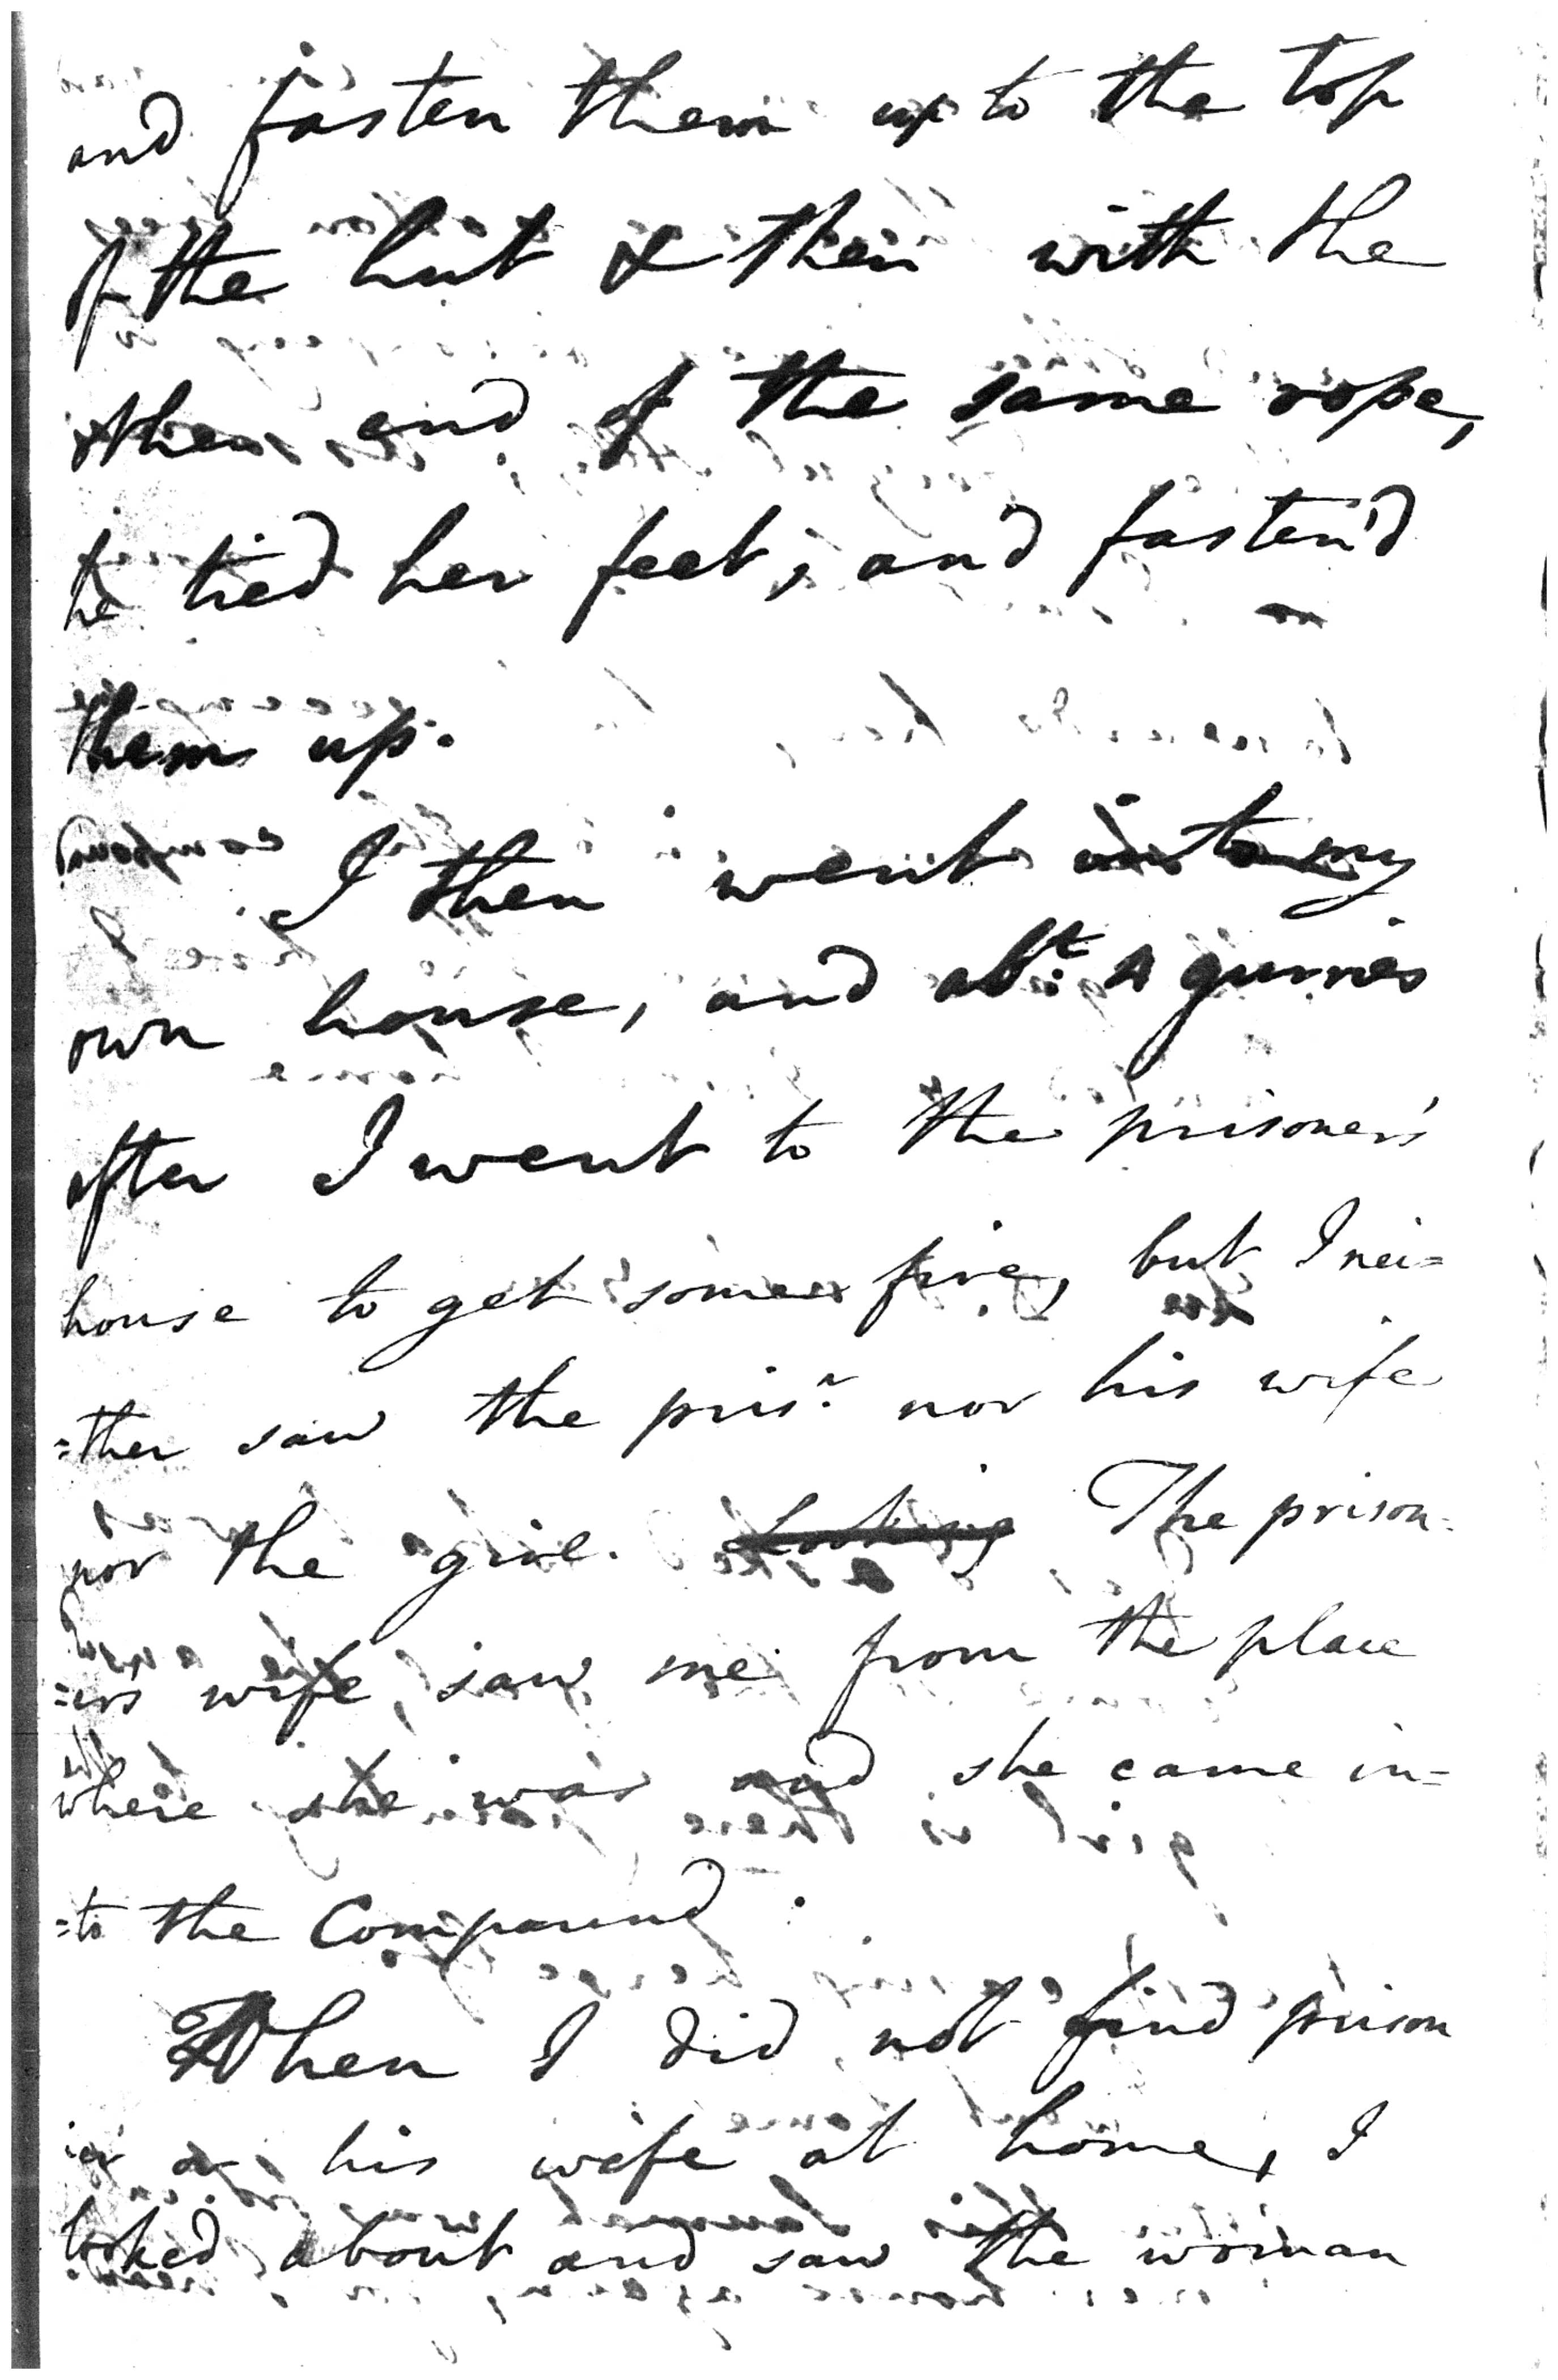 and fasten them up to the top
of the hut & then with the
other end of the same rope,
he tied her feet, and fasten'd
them up.
I then went into my
own house, and abt. 4 gurries
after I went to the prisoner's
house to get some fire, but I nei=
=ther saw the prisr. nor his wife
nor the girl. Looking The prison=
=ers wife, saw me from the place
where she was and she came in=
=to the Compound.
When I did not find prison
er or his wife at home, I
looked about and saw the woman